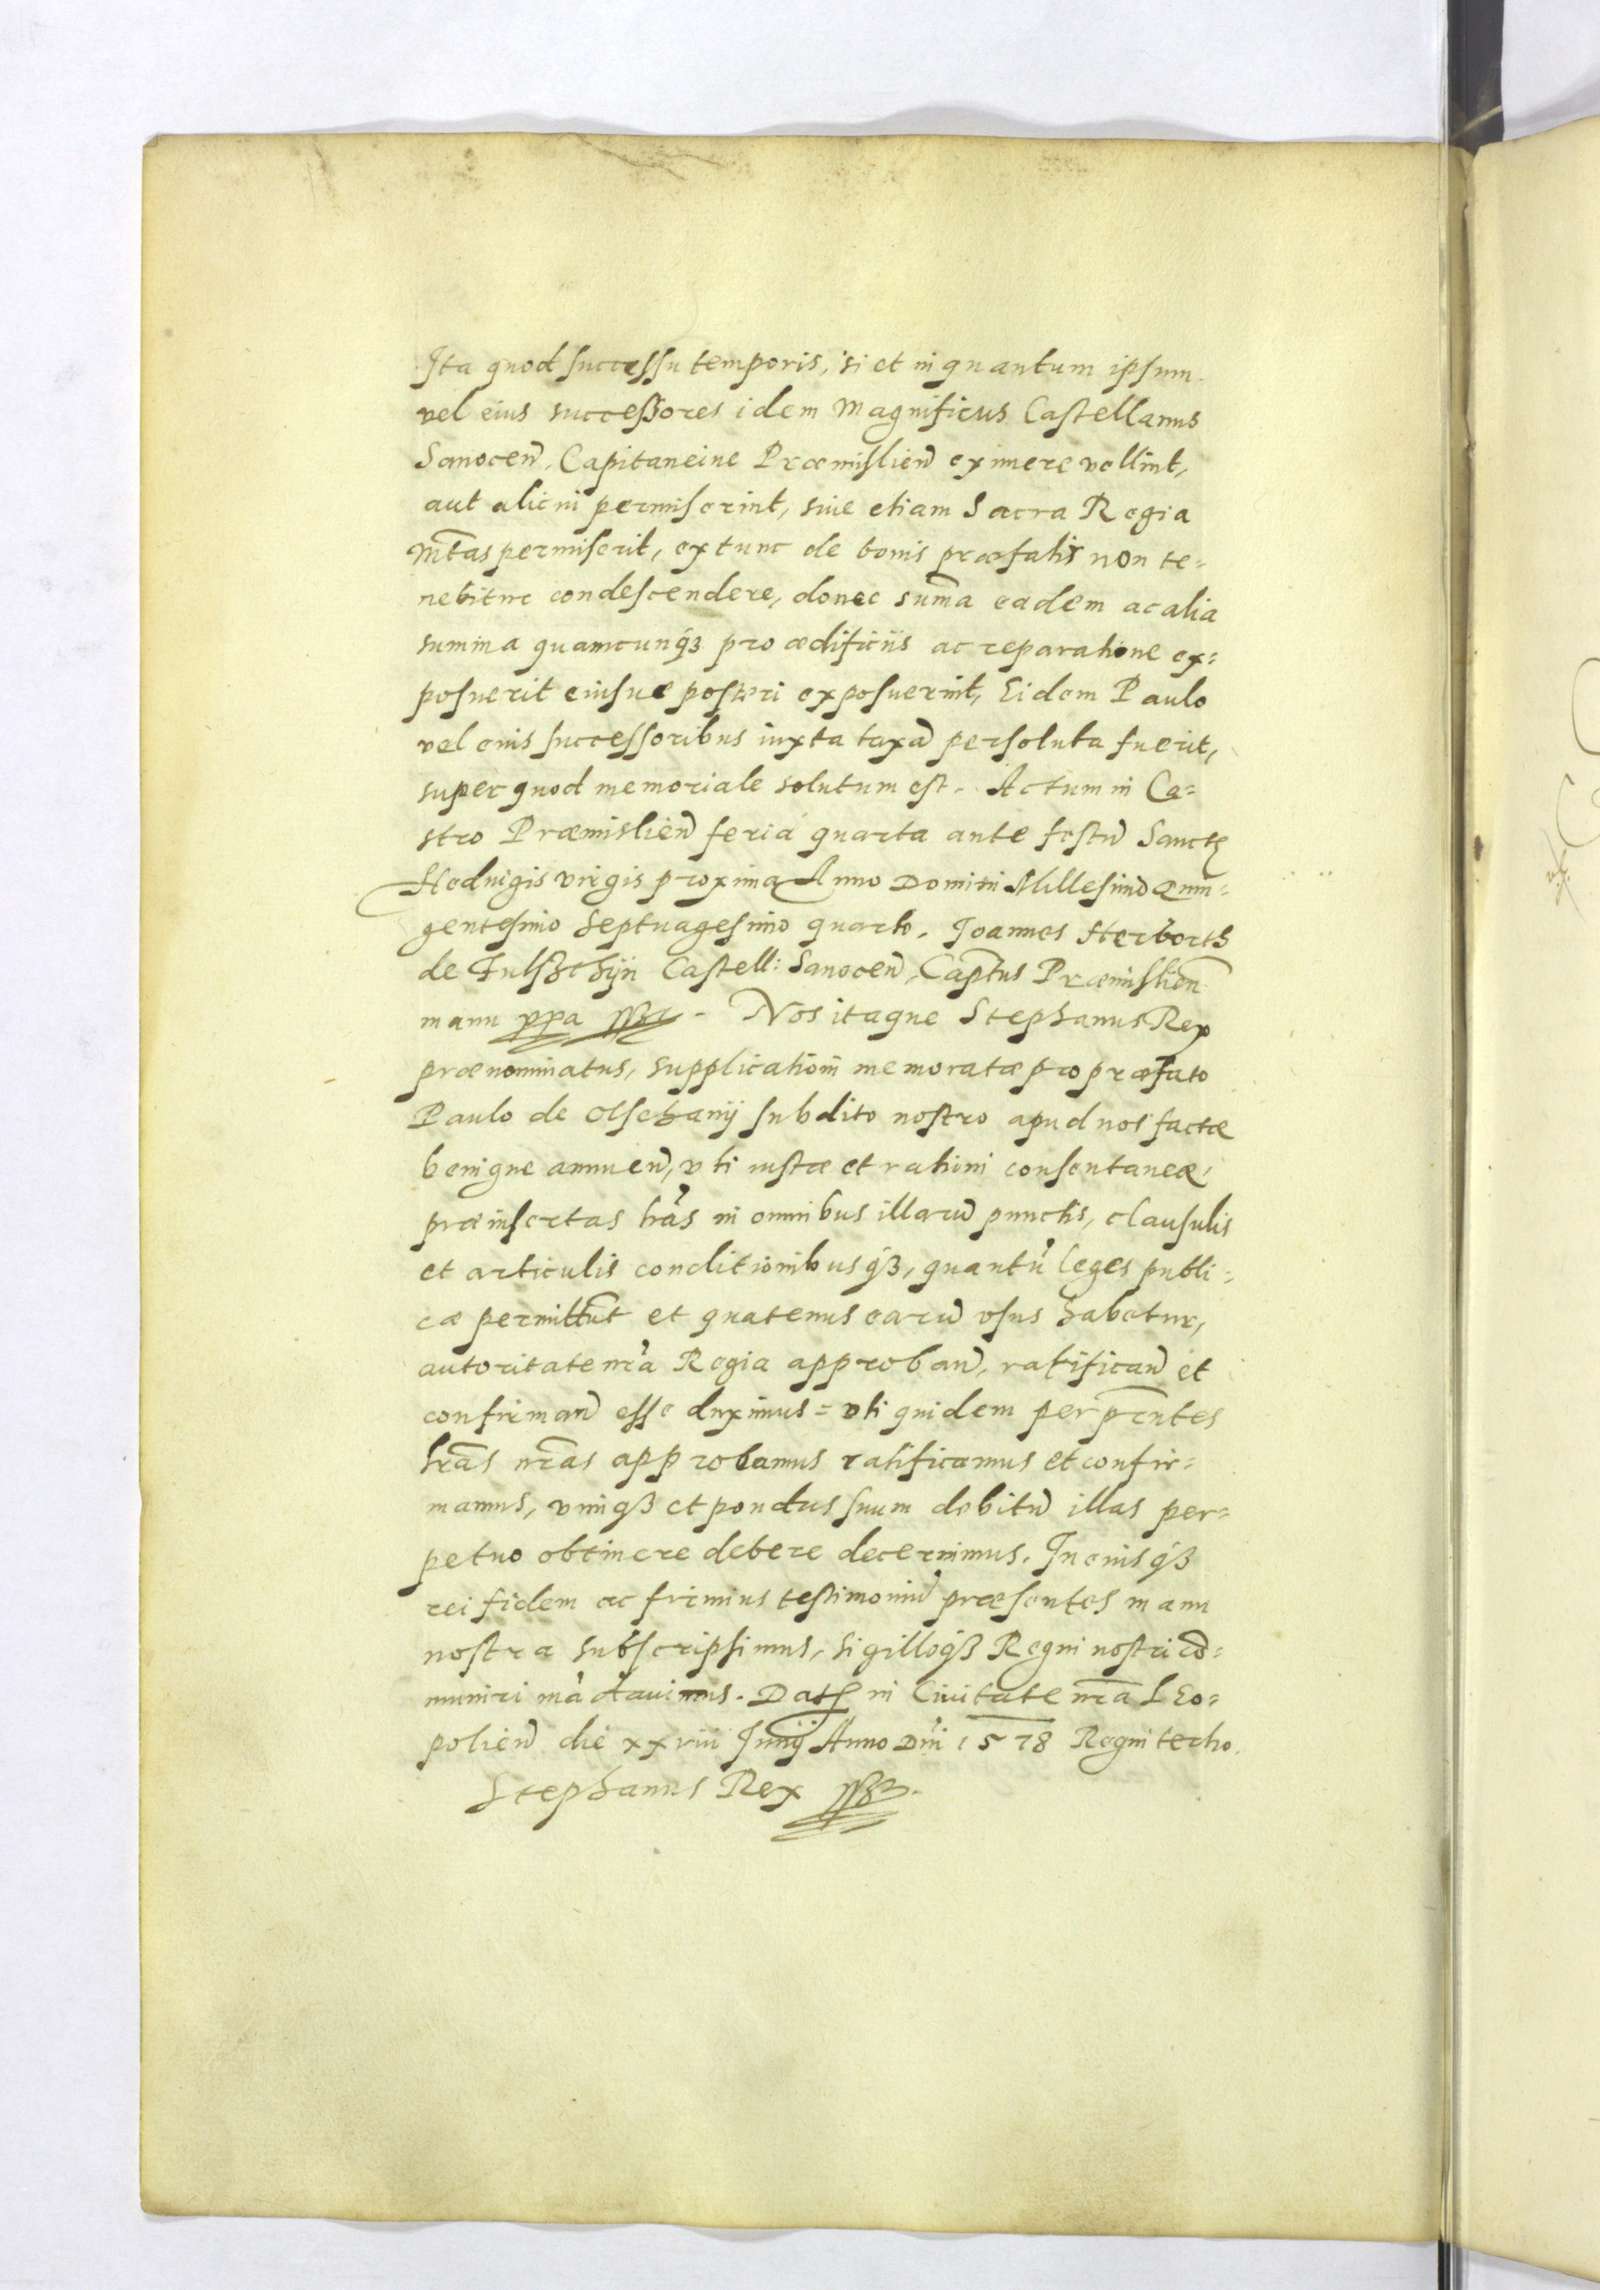 Ita quod successu temporis, si et in quantum ipsum
vel eius successores idem Magnificus Castellanus
Sanocen̄, Capitaneive Præmislien̄ eximere vellint,
aut alicui permiserint, sive etiam Sacra Regia
Mt̄as permiserit, extunc de bonis præfatis non te=
nebitur condescendere, donec sum̄a eadem ac alia
summa quamcunq꜑ pro ædificiis ac reparatione ex=
posuerit eiusve posteri exposuerint, Eidem Paulo
vel eius successoribus iuxta taxā persoluta fuerit,
super quod memoriale solutum est. Actum in Ca=
stro Præmislien̄ feria quarta ante festū Sanctę
Hedvigis virgis proxima Anno Domini Millesimo Quin=
gentesimo Septuagesimo quarto. Joannes Herborth
de Fulszthijn Castell: Sanocen̄, Capt̄us Præmislien̄
manu ppa. Nos itaque Stephanus Rex
prænominatus, supplicationi memoratæ pro præfato
Paulo de Olschanij subdito nostro apud nos factæ
benigne annuen̄, uti iustæ et rationi consentaneæ,
præinsertas lr̄as in omnibus illarū punctis, clausulis
et articulis conditionibusq꜑, quantū leges publi=
cæ permittūt et quatenus earū usus habetur,
autoritate nr̄a Regia approban̄, ratifican̄ et
confirman̄ esse duximus = uti quidem per pn̄tes
lr̄as nr̄as approbamus ratificamus et confir=
mamus, vimq꜑ et pondus suum debitū illas per=
petuo obtinere debere decernimus. In cuius q꜑
rei fidem ac firmius testimoniū præsentes manu
nostra subscripsimus, sigilloq꜑ Regni nostri cō=
muniri mādavimus. Datꝭ in Civitate nr̄a Leo=
polien̄ die xxviii Junij Anno Dn̄i 1578 Regni tertio.
Stephanus Rex